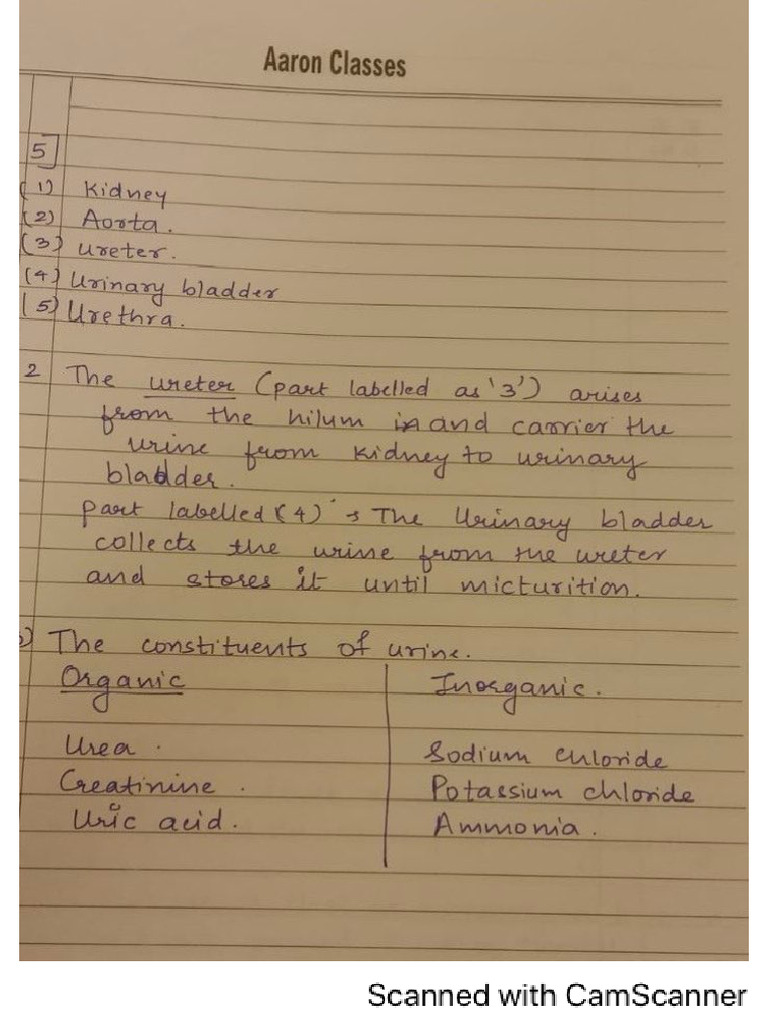 Aaron Classes
5
(1) Kidney
(2) Aorta.
(3) ureter.
(4) Urinary bladder
(5) Urethra.
2 The ureter (part labelled as '3') arises
from the hilum and carrier the
urine from kidney to urinary
bladder.
part labelled (4) → The Urinary bladder
collects the urine from the ureter
and stores it until micturition.
) The constituents of urine.
Organic Inorganic.
Urea. Sodium chloride
Creatinine. Potassium chloride
Uric acid. Ammonia.
Scanned with CamScanner